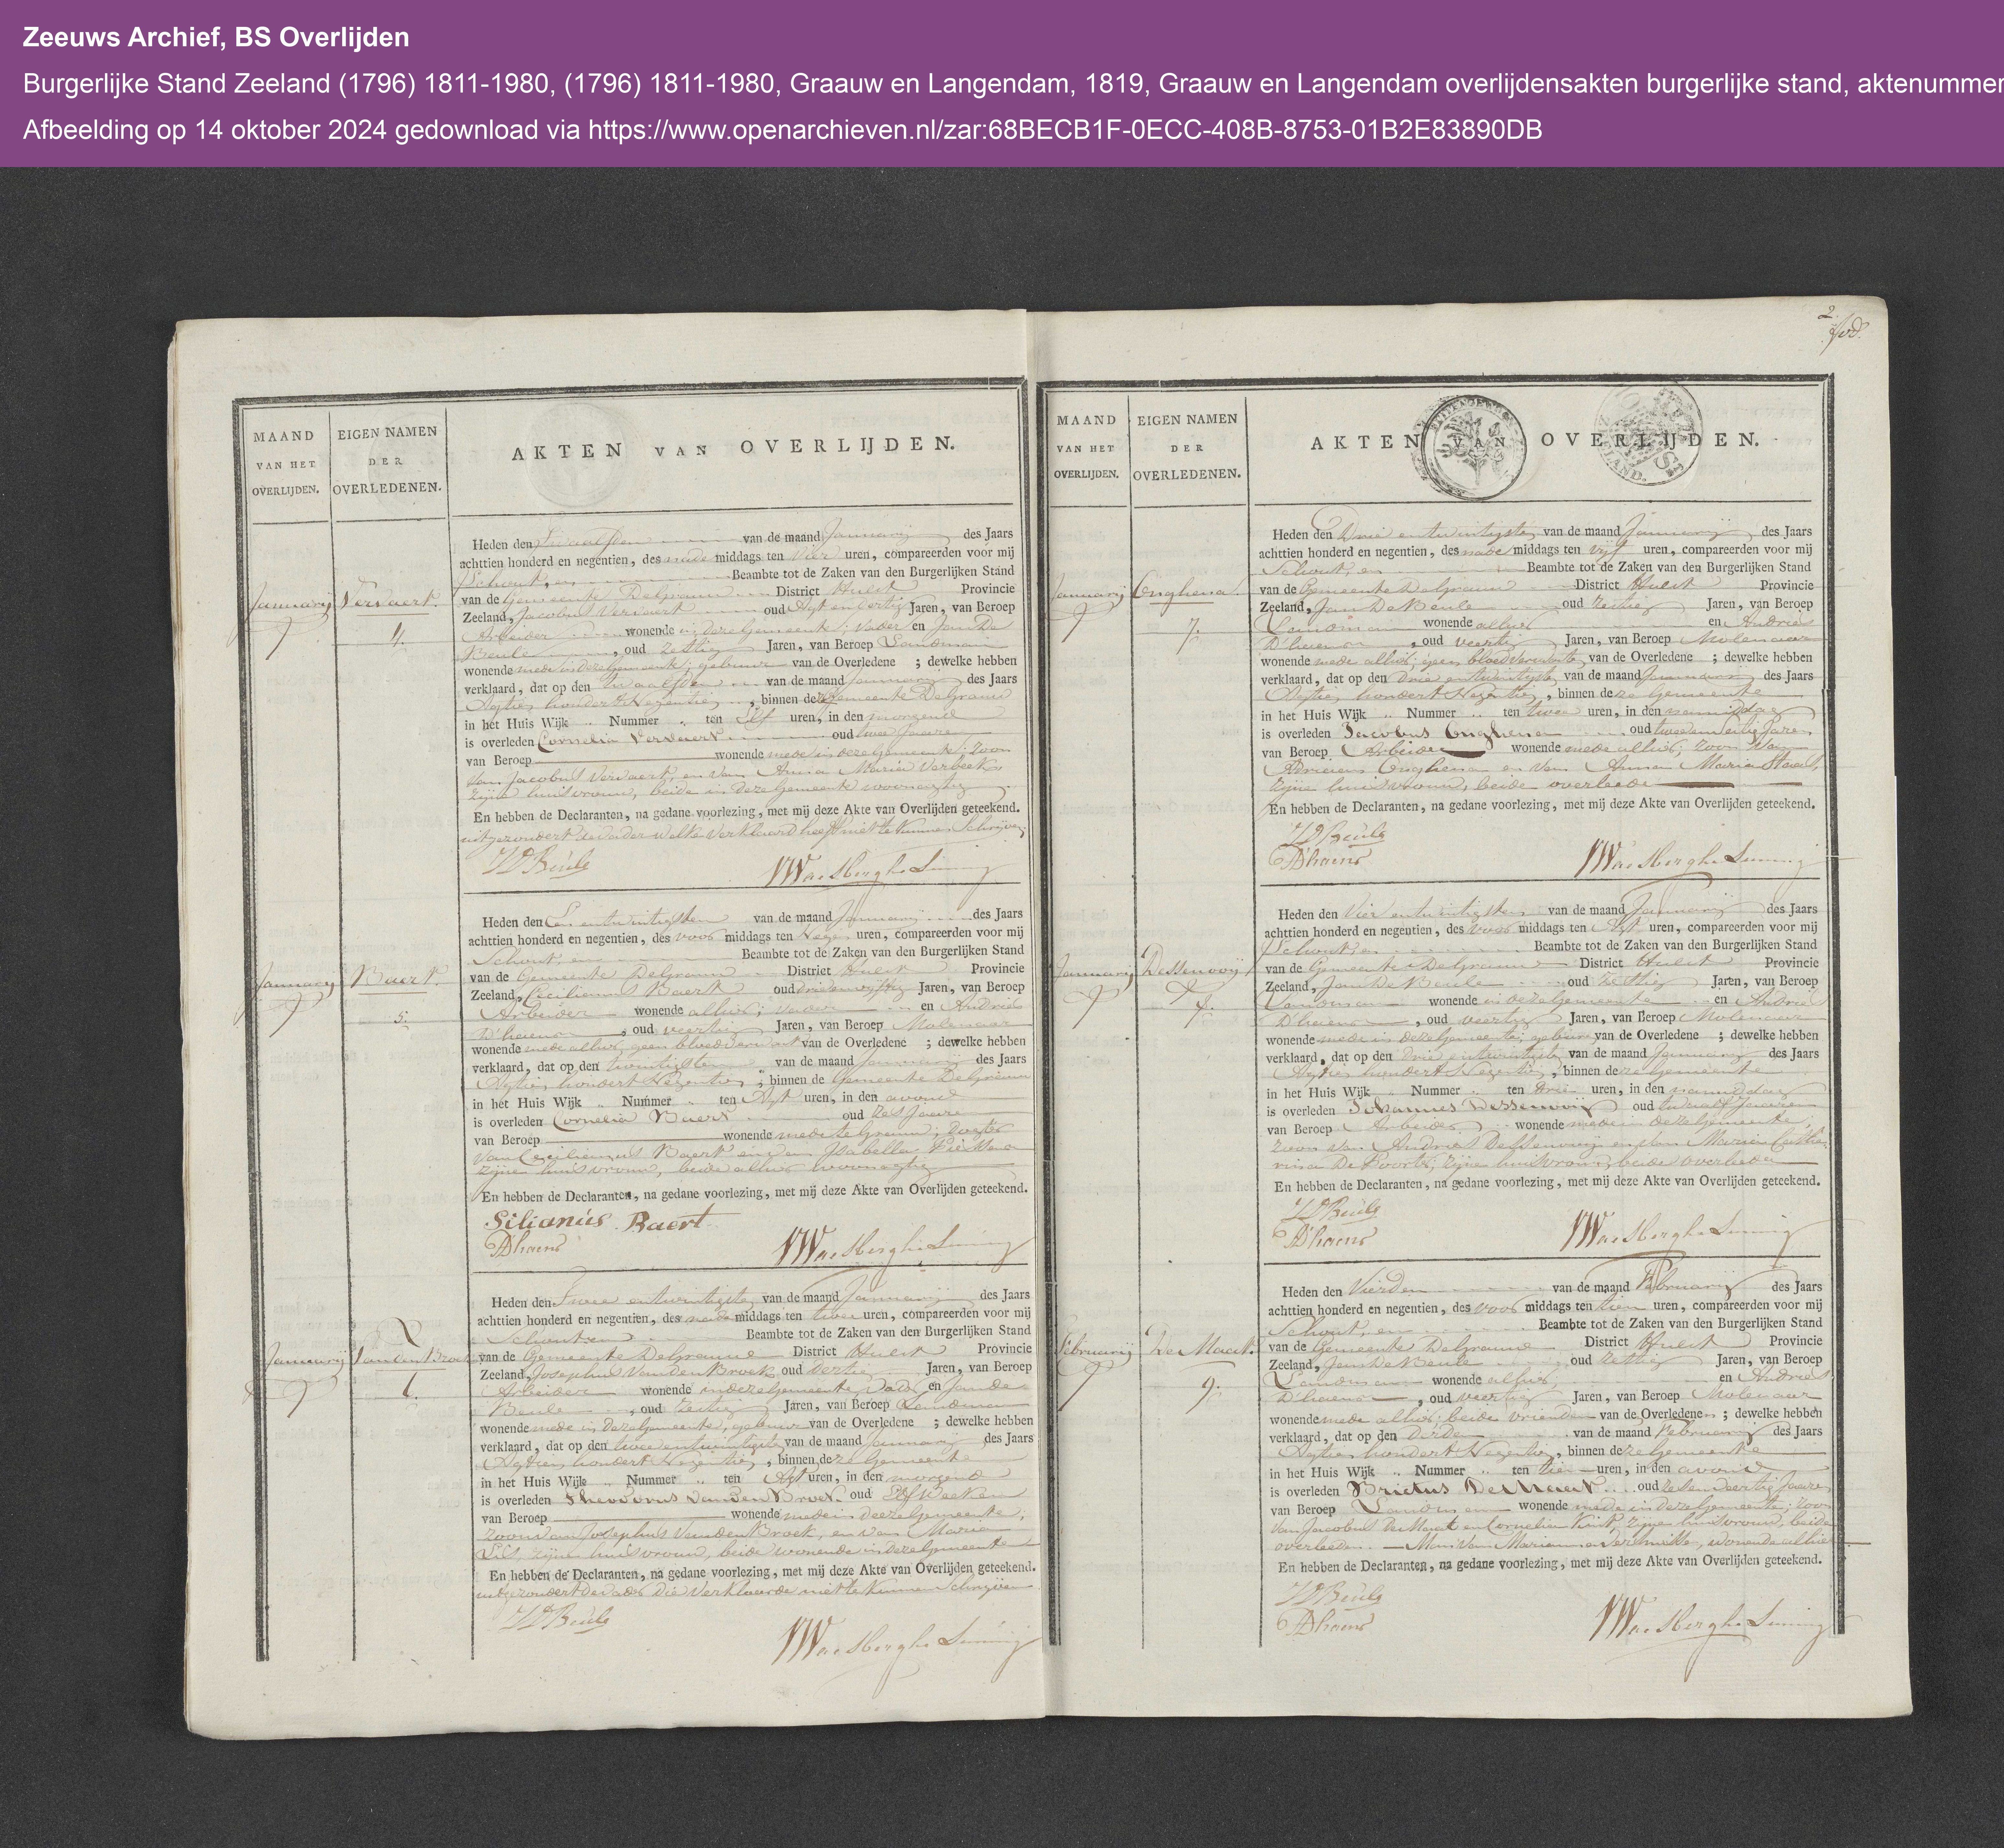 Zeeuws Archief, BS Overlijden
Burgerlijke Stand Zeeland (1796) 1811-1980, (1796) 1811-1980, Graauw en Langendam, 1819, Graauw en Langendam overlijdensakten burgerlijke stand, aktenummer
Afbeelding op 14 oktober 2024 gedownload via https://www.openarchieven.nl/zar:68BECB1F-0ECC-408B-8753-01B2E83890DB
MAAND
VAN HET
OVERLIJDEN.
EIGEN NAMEN
DER
OVERLEDENEN.
AKTEN VAN OVERLIJDEN.
January
Vervaert.
4.
Heden den Twaalfden van de maand January des Jaars
achttien honderd en negentien, des nade middags ten Vier uren, compareerden voor mij
Schout, en Beambte tot de Zaken van den Burgerlijken Stand
van de Gemeente DeGrauw District Hulst Provincie
Zeeland, Jacobus Vervaert oud Agt en dertig Jaren, van Beroep
Arbeider wonende in deze Gemeente; vader en Jan De
Beule, oud zestig Jaren, van Beroep Landman
wonende mede in deze Gemeente; gebuur van de Overledene; dewelke hebben
verklaard, dat op den twaalfden van de maand January des Jaars
Agtien hondert Negentien, binnen deze Gemeente DeGrauw
in het Huis Wijk " Nummer " ten Elf uren, in den morgend
is overleden Cornelis Vervaert oud twee Jaaren
van Beroep wonende mede in deze Gemeente; zoon
van Jacobus Vervaert, en van Anna Maria Verbeek
zijne huisvrouw, beide in deze Gemeente woonagtig
En hebben de Declaranten, na gedane voorlezing, met mij deze Akte van Overlijden geteekend.
uitgezondert de vader welke verklaard heeft niet te kunnen Schrijven
JD Beule
January
Baert.
5.
Heden den Een en twintigsten van de maand January des Jaars
achttien honderd en negentien, des voor middags ten Negen uren, compareerden voor mij
Schout, en Beambte tot de Zaken van den Burgerlijken Stand
van de Gemeente DeGrauw District Hulst Provincie
Zeeland, Cecilianus Baert oud drie en vyftig Jaren, van Beroep
Arbeider wonende alhier; vader en Andries
D'haens, oud veertig Jaren, van Beroep Molenaar
wonende mede alhier, geen bloedverwant van de Overledene; dewelke hebben
verklaard, dat op den twintigsten van de maand January des Jaars
Agtien hondert Negentien, binnen de Gemeente DeGrauw
in het Huis Wijk " Nummer " ten Agt uren, in den avond
is overleden Cornelia Baert oud zes Jaaren
van Beroep wonende mede te Grauw; dogter
van Cecilianus Baert en van Isabella
zijne huisvrouw, beide alhier woonagtig
En hebben de Declaranten, na gedane voorlezing, met mij deze Akte van Overlijden geteekend.
Silianús Baert
AD'haens
January
Van den Broek
6.
Heden den Twee en twintigsten van de maand January des Jaars
achttien honderd en negentien, des nade middags ten twee uren, compareerden voor mij
Schout en Beambte tot de Zaken van den Burgerlijken Stand
van de Gemeente DeGrauw District Hulst Provincie
Zeeland, Josephus Van den Broek oud dertig Jaren, van Beroep
Arbeider wonende in deze Gemeente, Vader en Jan de
Beule, oud zestig Jaren, van Beroep Landman
wonende mede in deze Gemeente, gebuur van de Overledene; dewelke hebben
verklaard, dat op den twee en twintigste van de maand January des Jaars
Agtien hondert Negentien, binnen deze Gemeente
in het Huis Wijk " Nummer " ten Agt uren, in den morgend
is overleden Theodorus Van Den Broek oud Elf Weeken
van Beroep wonende mede in deeze Gemeente,
zoon van Josephus Van den Broek, en van Maria
zijne huisvrouw, beide wonende in deze Gemeente
En hebben de Declaranten, na gedane voorlezing, met mij deze Akte van Overlijden geteekend.
uitgezondert de vader die verklaarde niet te kunnen Schrijven
JD Beule
2
MAAND
VAN HET
OVERLIJDEN.
EIGEN NAMEN
DER
OVERLEDENEN.
AKTEN VAN OVERLIJDEN.
January
Enghena.
7.
Heden den Drie en twintigste van de maand January des Jaars
achttien honderd en negentien, des nade middags ten vyf uren, compareerden voor mij
Schout, en Beambte tot de Zaken van den Burgerlijken Stand
van de Gemeente DeGrauw District Hulst Provincie
Zeeland, Jan De Beule oud zestig Jaren, van Beroep
Landman wonende alhier en Andries
D'haens, oud veertig Jaren, van Beroep Molenaar
wonende mede alhier; geen bloedverwante van de Overledene; dewelke hebben
verklaard, dat op den drie en twintigste van de maand January des Jaars
Agtien hondert Negentien, binnen deze Gemeente
in het Huis Wijk " Nummer " ten twee uren, in den namiddag
is overleden Jacobus Enghena oud Jaren
van Beroep Arbeider wonende mede alhier; zoon van
Adrianus Enghena en van Anna Maria Staal,
zijne huisvrouw, beide overleede
En hebben de Declaranten, na gedane voorlezing, met mij deze Akte van Overlijden geteekend.
JD Beule
AD'haens
January
Dessenwyn
8.
Heden den Vier en twintigsten van de maand January des Jaars
achttien honderd en negentien, des voor middags ten Agt uren, compareerden voor mij
Schout, en Beambte tot de Zaken van den Burgerlijken Stand
van de Gemeente DeGrauw District Hulst Provincie
Zeeland, Jan De Beule oud zestig Jaren, van Beroep
Landman wonende in deze Gemeente en Andries
D'haens, oud veertig Jaren, van Beroep Molenaar
wonende mede in deze Gemeente; gebuur van de Overledene; dewelke hebben
verklaard, dat op den drie en twintigste van de maand January des Jaars
Agtien hondert Negentien, binnen deze Gemeente
in het Huis Wijk " Nummer " ten drie uren, in den namiddag
is overleden Johannes oud twaalf Jaaren
van Beroep Arbeider wonende mede in deze Gemeente,
zoon van Andries en van Maria Catha-
rina De Poorter, zijne huisvrouw, beide overleden
En hebben de Declaranten, na gedane voorlezing, met mij deze Akte van Overlijden geteekend.
JD Beule
AD'haens
February
De Maat.
9.
Heden den Vierden van de maand February des Jaars
achttien honderd en negentien, des voor middags ten tien uren, compareerden voor mij
Schout, en Beambte tot de Zaken van den Burgerlijken Stand
van de Gemeente DeGrauw District Hulst Provincie
Zeeland, Jan De Beule oud zestig Jaren, van Beroep
Landman wonende alhier, en Andries
D'haens, oud veertig Jaren, van Beroep Molenaar
wonende mede alhier; beide vrienden van de Overledene; dewelke hebben
verklaard, dat op den Derde van de maand February des Jaars
Agtien hondert Negentien, binnen deze Gemeente
in het Huis Wijk " Nummer " ten tien uren, in den avond
is overleden Brictus De Maat oud zeven Jaaren
van Beroep Landman wonende mede in deze Gemeente; zoon
van Jacobus De Maat en Cornelia zijne huisvrouw, beide
overleeden. — Man van Marianna wonende alhier
En hebben de Declaranten, na gedane voorlezing, met mij deze Akte van Overlijden geteekend.
JD Beule
AD'haens